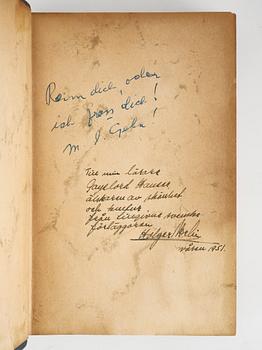 Reim dich, oder
ich fress dich!
M. J.
Till min lärare
Gayelord Hauser
älskaren av skönhet
och kultur
från livgivne svenske
förläggaren
Holger
våren 1951.